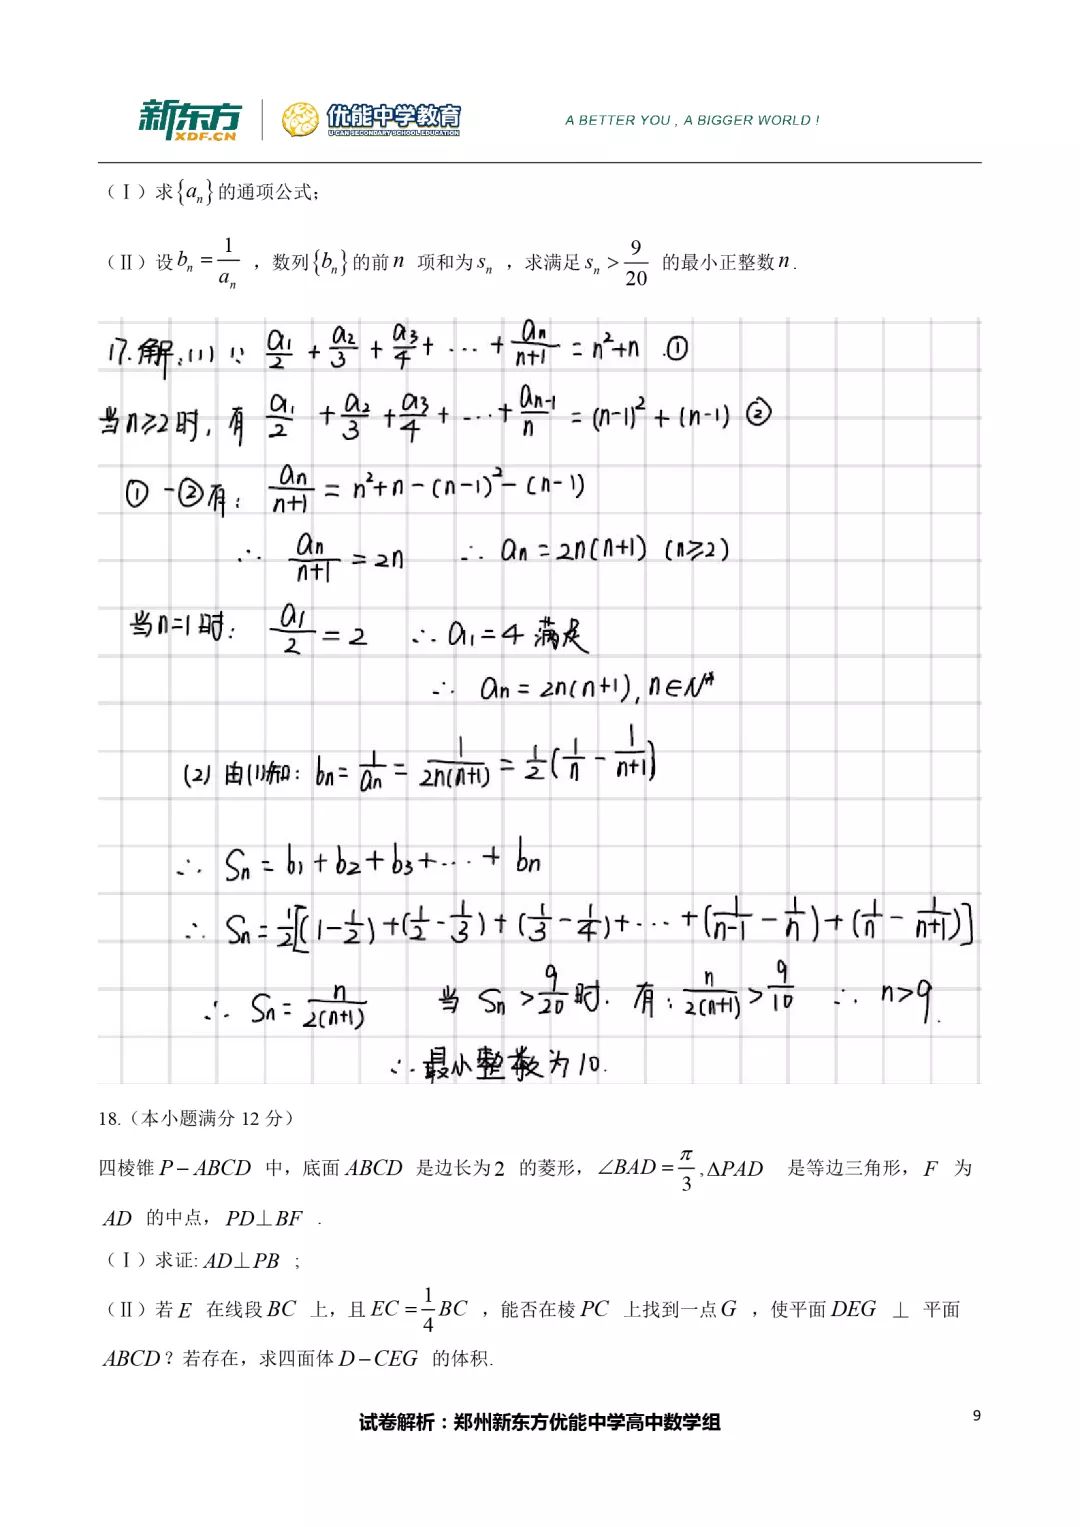 新东方 XDF.CN 优能中学教育 U-CAN SECONDARY SCHOOL EDUCATION A BETTER YOU , A BIGGER WORLD !
（Ⅰ）求{aₙ}的通项公式;
（Ⅱ）设 bₙ = 1/aₙ ，数列{bₙ}的前 n 项和为 sₙ ，求满足 sₙ > 9/20 的最小正整数 n .
17.解:(1) ∵ a₁/2 + a₂/3 + a₃/4 + ⋯ + aₙ/(n+1) = n²+n .①
当n≥2时, 有 a₁/2 + a₂/3 + a₃/4 + ⋯ + aₙ₋₁/n = (n-1)² + (n-1) ②
① -②有: aₙ/(n+1) = n²+n-(n-1)²-(n-1)
∴ aₙ/(n+1) = 2n ∴ aₙ = 2n(n+1) (n≥2)
当n=1时: a₁/2 = 2 ∴ a₁=4 满足
∴ aₙ = 2n(n+1), n∈N*
(2) 由(1)知: bₙ = 1/aₙ = 1/2n(n+1) = 1/2(1/n - 1/(n+1))
∴ Sₙ = b₁+b₂+b₃+⋯+bₙ
∴ Sₙ = 1/2[(1-1/2)+(1/2-1/3)+(1/3-1/4)+⋯+(1/(n-1) - 1/n)+(1/n - 1/(n+1))]
∴ Sₙ = n/2(n+1) 当 Sₙ > 9/20 时. 有: n/2(n+1) > 9/10 ∴ n>9.
∴最小整数为10.
18.（本小题满分 12 分）
四棱锥 P－ABCD 中，底面 ABCD 是边长为 2 的菱形，∠BAD = π/3 , ΔPAD 是等边三角形，F 为
AD 的中点，PD⊥BF .
（Ⅰ）求证: AD⊥PB ;
（Ⅱ）若 E 在线段 BC 上，且 EC = 1/4 BC ，能否在棱 PC 上找到一点 G ，使平面 DEG ⊥ 平面
ABCD？若存在，求四面体 D－CEG 的体积.
试卷解析：郑州新东方优能中学高中数学组
9